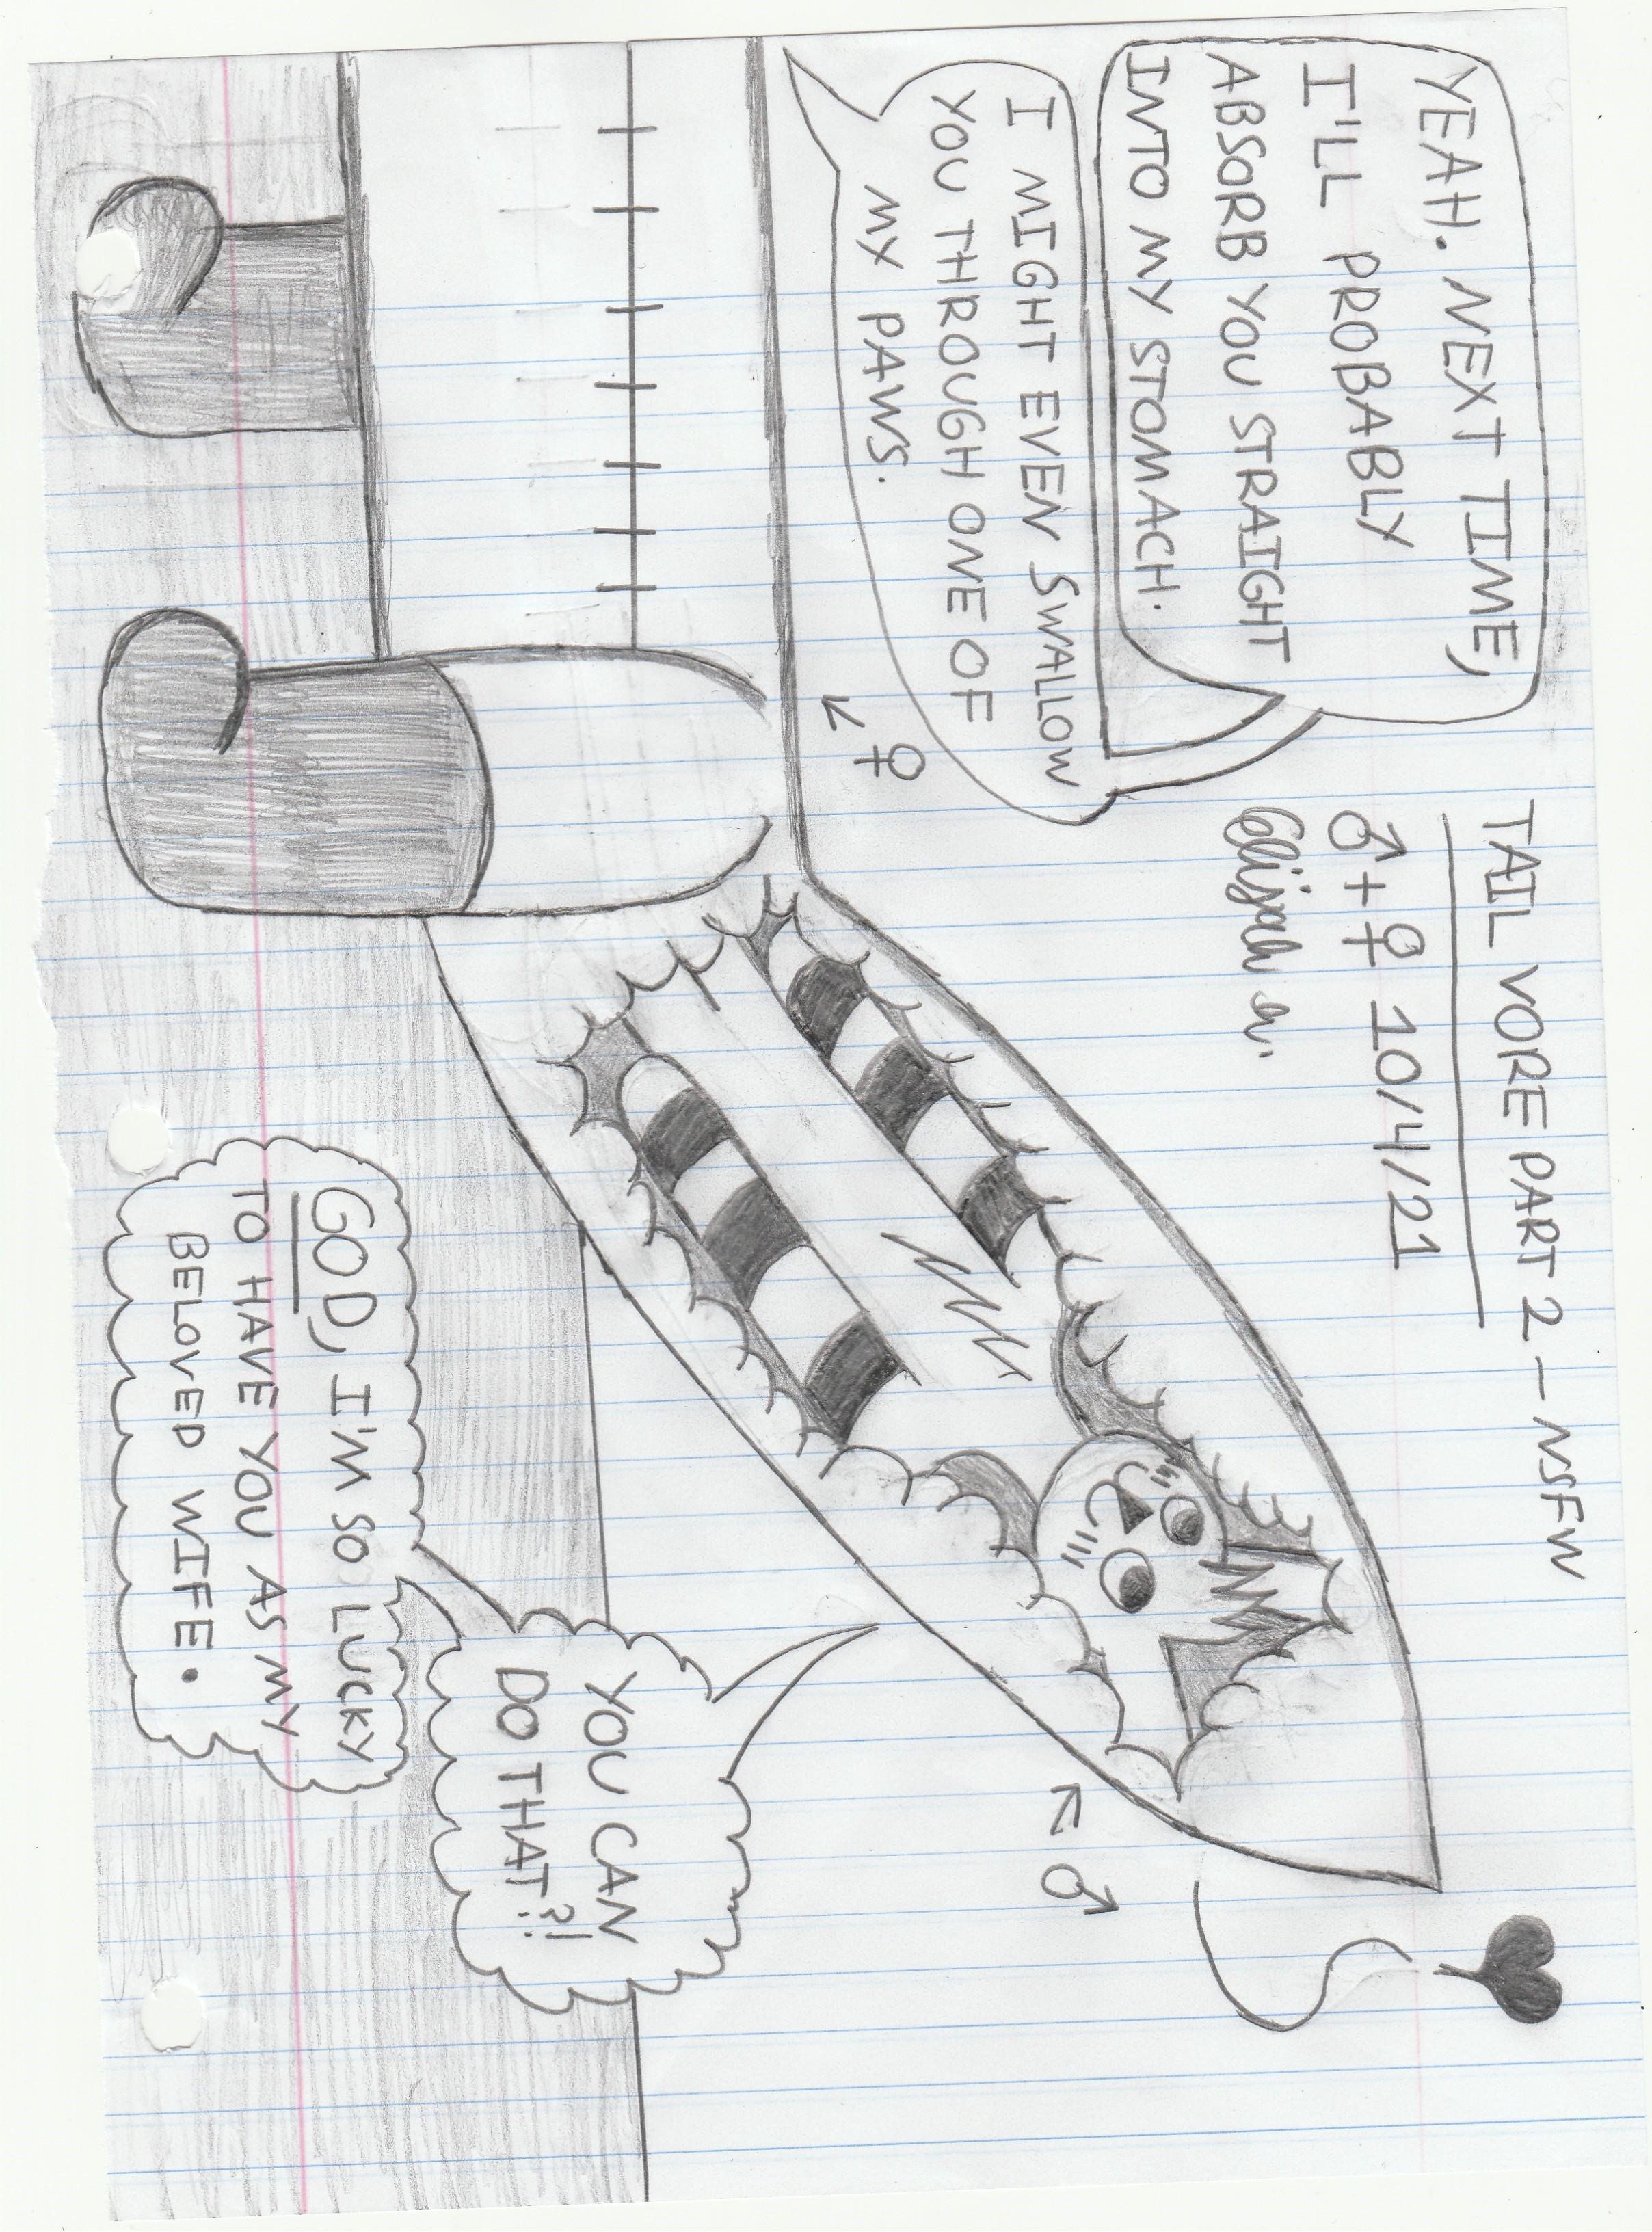 TAIL VORE PART 2 - NSFW
♂+♀ 10/4/21
Elijah
YEAH. NEXT TIME,
I'LL PROBABLY
ABSORB YOU STRAIGHT
INTO MY STOMACH.
I MIGHT EVEN SWALLOW
YOU THROUGH ONE OF
MY PAWS.
♀
♂
YOU CAN
DO THAT?!
GOD, I'M SO LUCKY
TO HAVE YOU AS MY
BELOVED WIFE.